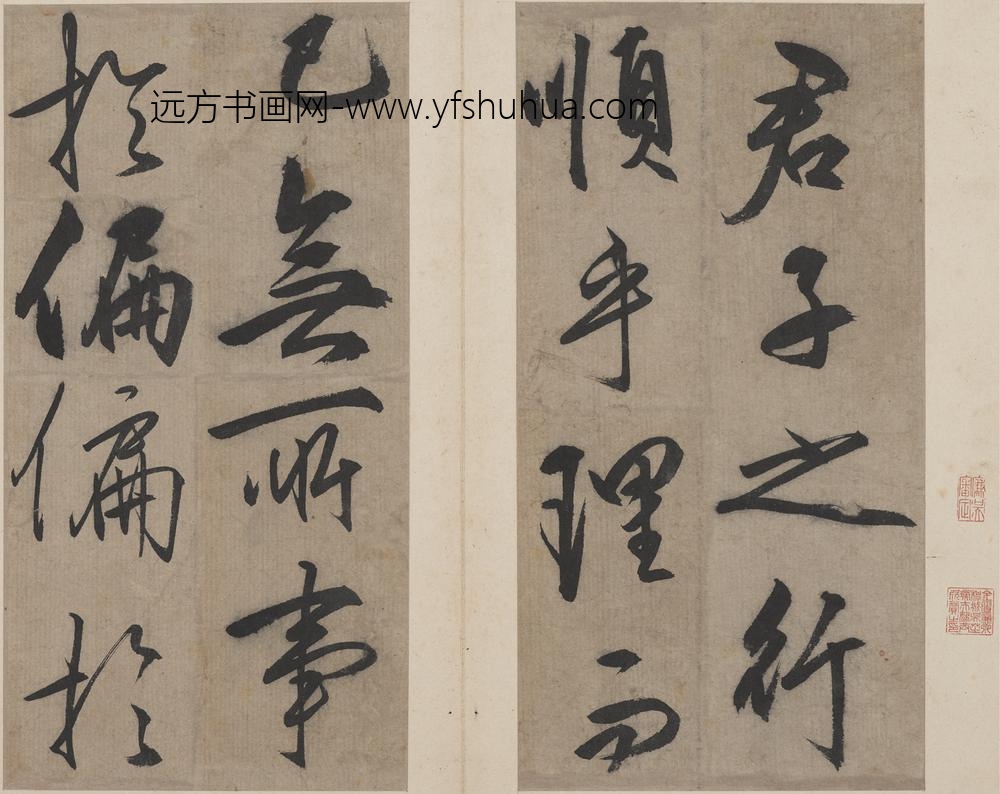 君子之行
順乎理而
已無所事
於偏偏於
远方书画网-www.yfshuhua.com